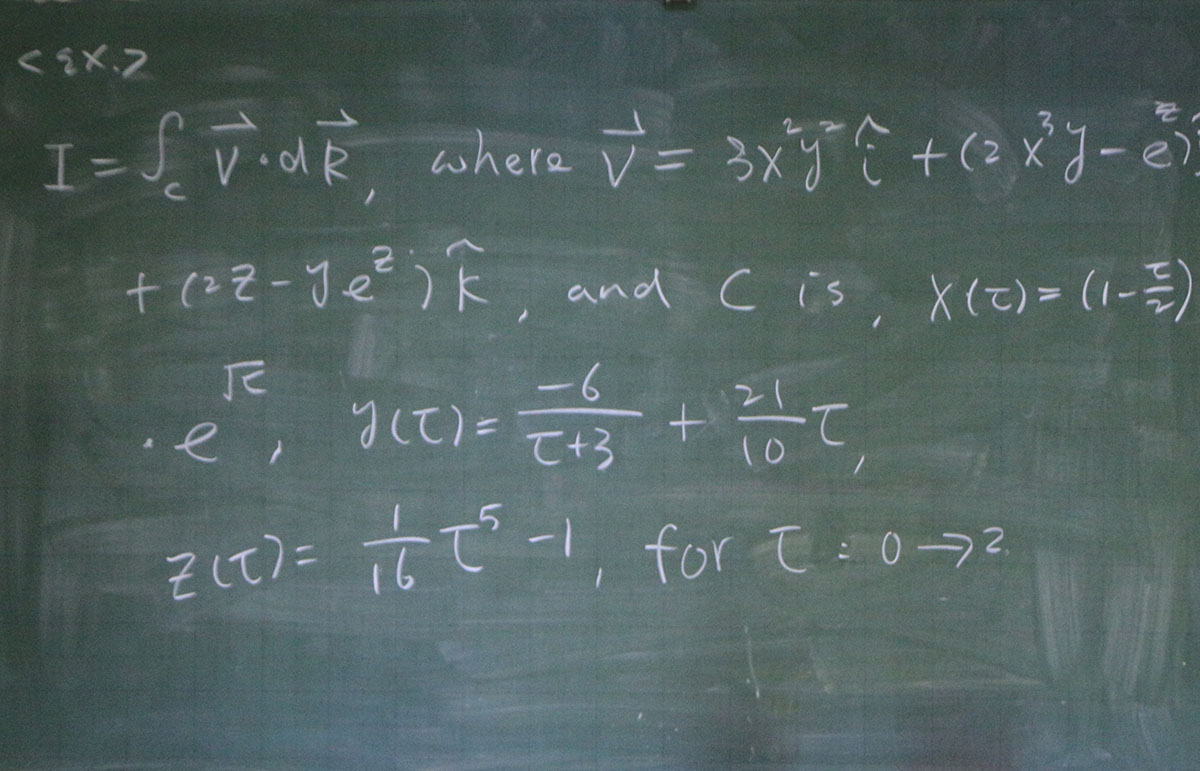 <ex.>
I = ∫_C V⃗ · dR⃗, where V⃗ = 3x²y² î + (2x³y - e^z)
+ (2z - ye^z) k̂, and C is, x(τ) = (1 - τ/2)
· e^√τ, y(τ) = -6/(τ+3) + 21/10 τ,
z(τ) = 1/16 τ⁵ - 1, for τ : 0 → 2.